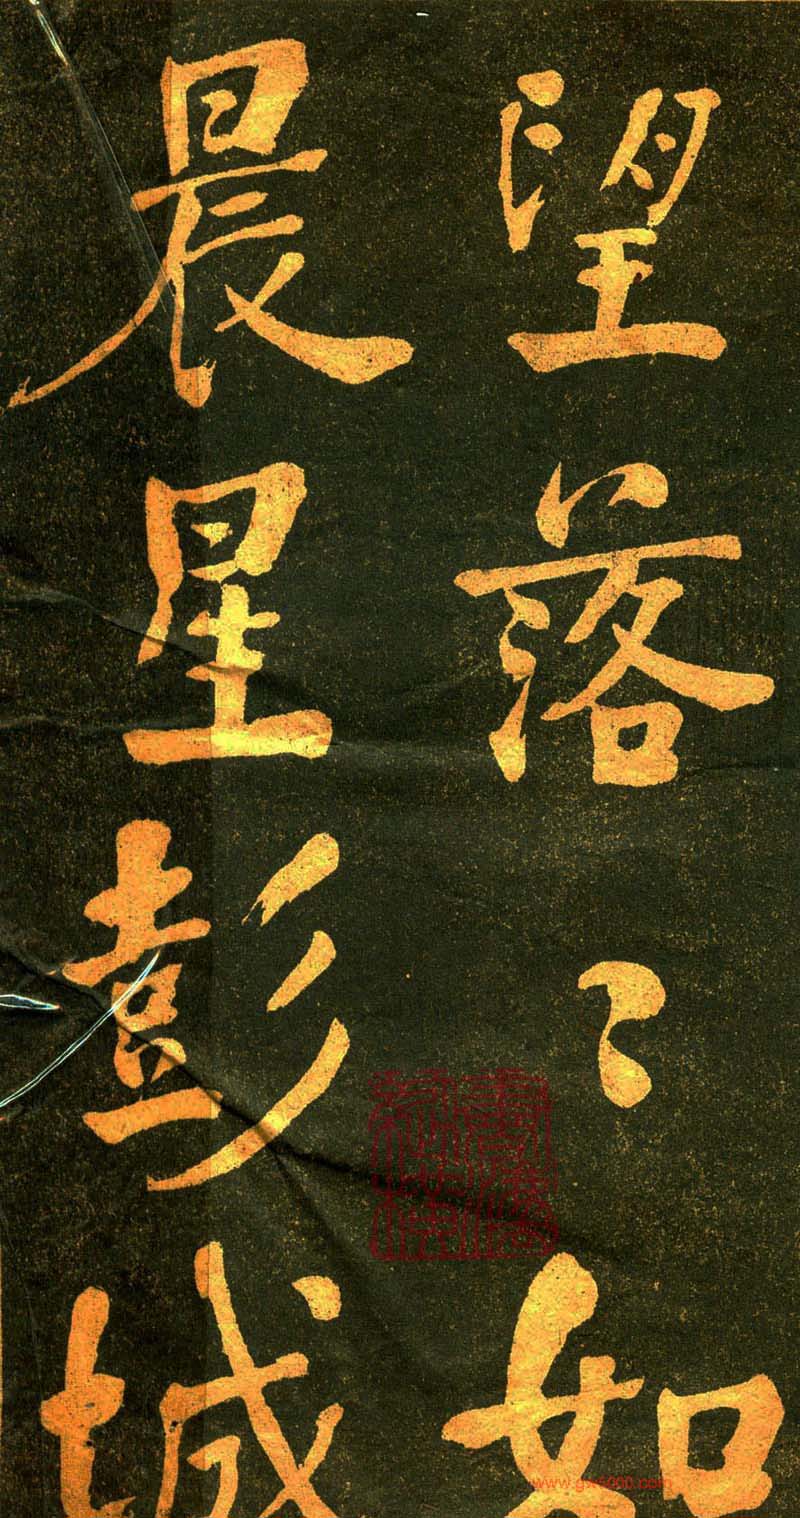 望落〻如
晨星彭城
www.gx5000.com